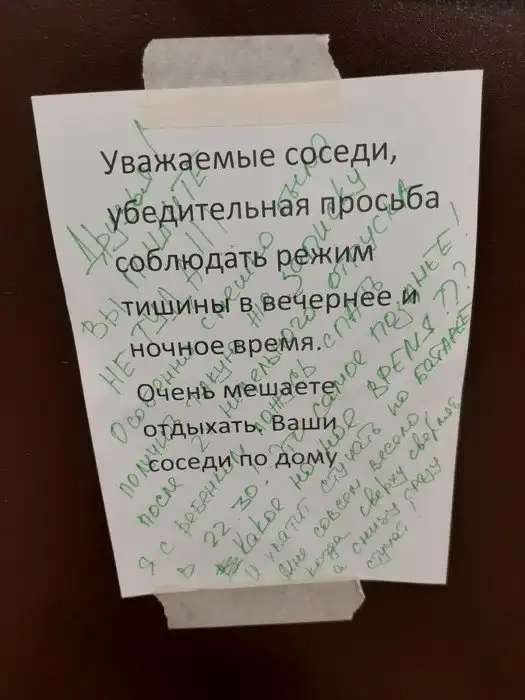 Уважаемые соседи,
убедительная просьба
соблюдать режим
тишины в вечернее и
ночное время.
Очень мешаете
отдыхать. Ваши
соседи по дому
Друзья!
ВЫ ПИШИТЕ
НЕ ТУДА!!!
Особенно смешно было
получить такую же записку
после 2 недельного отпуска
Я с ребенком ложусь спать
в 22 30. Это самое позднее!
Какое ночное ВРЕМЯ???
И хватит стучать по батарее
мне совсем весело
когда сверху сверлят
а снизу сразу
стучат!